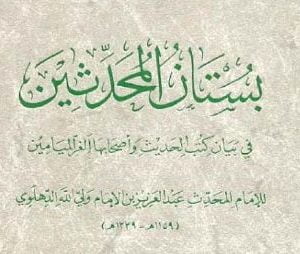 بُسْتَانُ المُحَدِّثِين
في بيان كتب الحديث وأصحابها الغر الميامين
للإمام المحدث عبد العزيز بن الإمام ولي الله الدهلوي
(١١٥٩هـ - ١٢٣٩هـ)